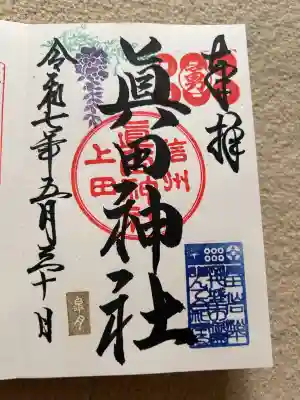 奉拝
勇
眞田神社
信州
上田
令和七年五月三十日
皐月